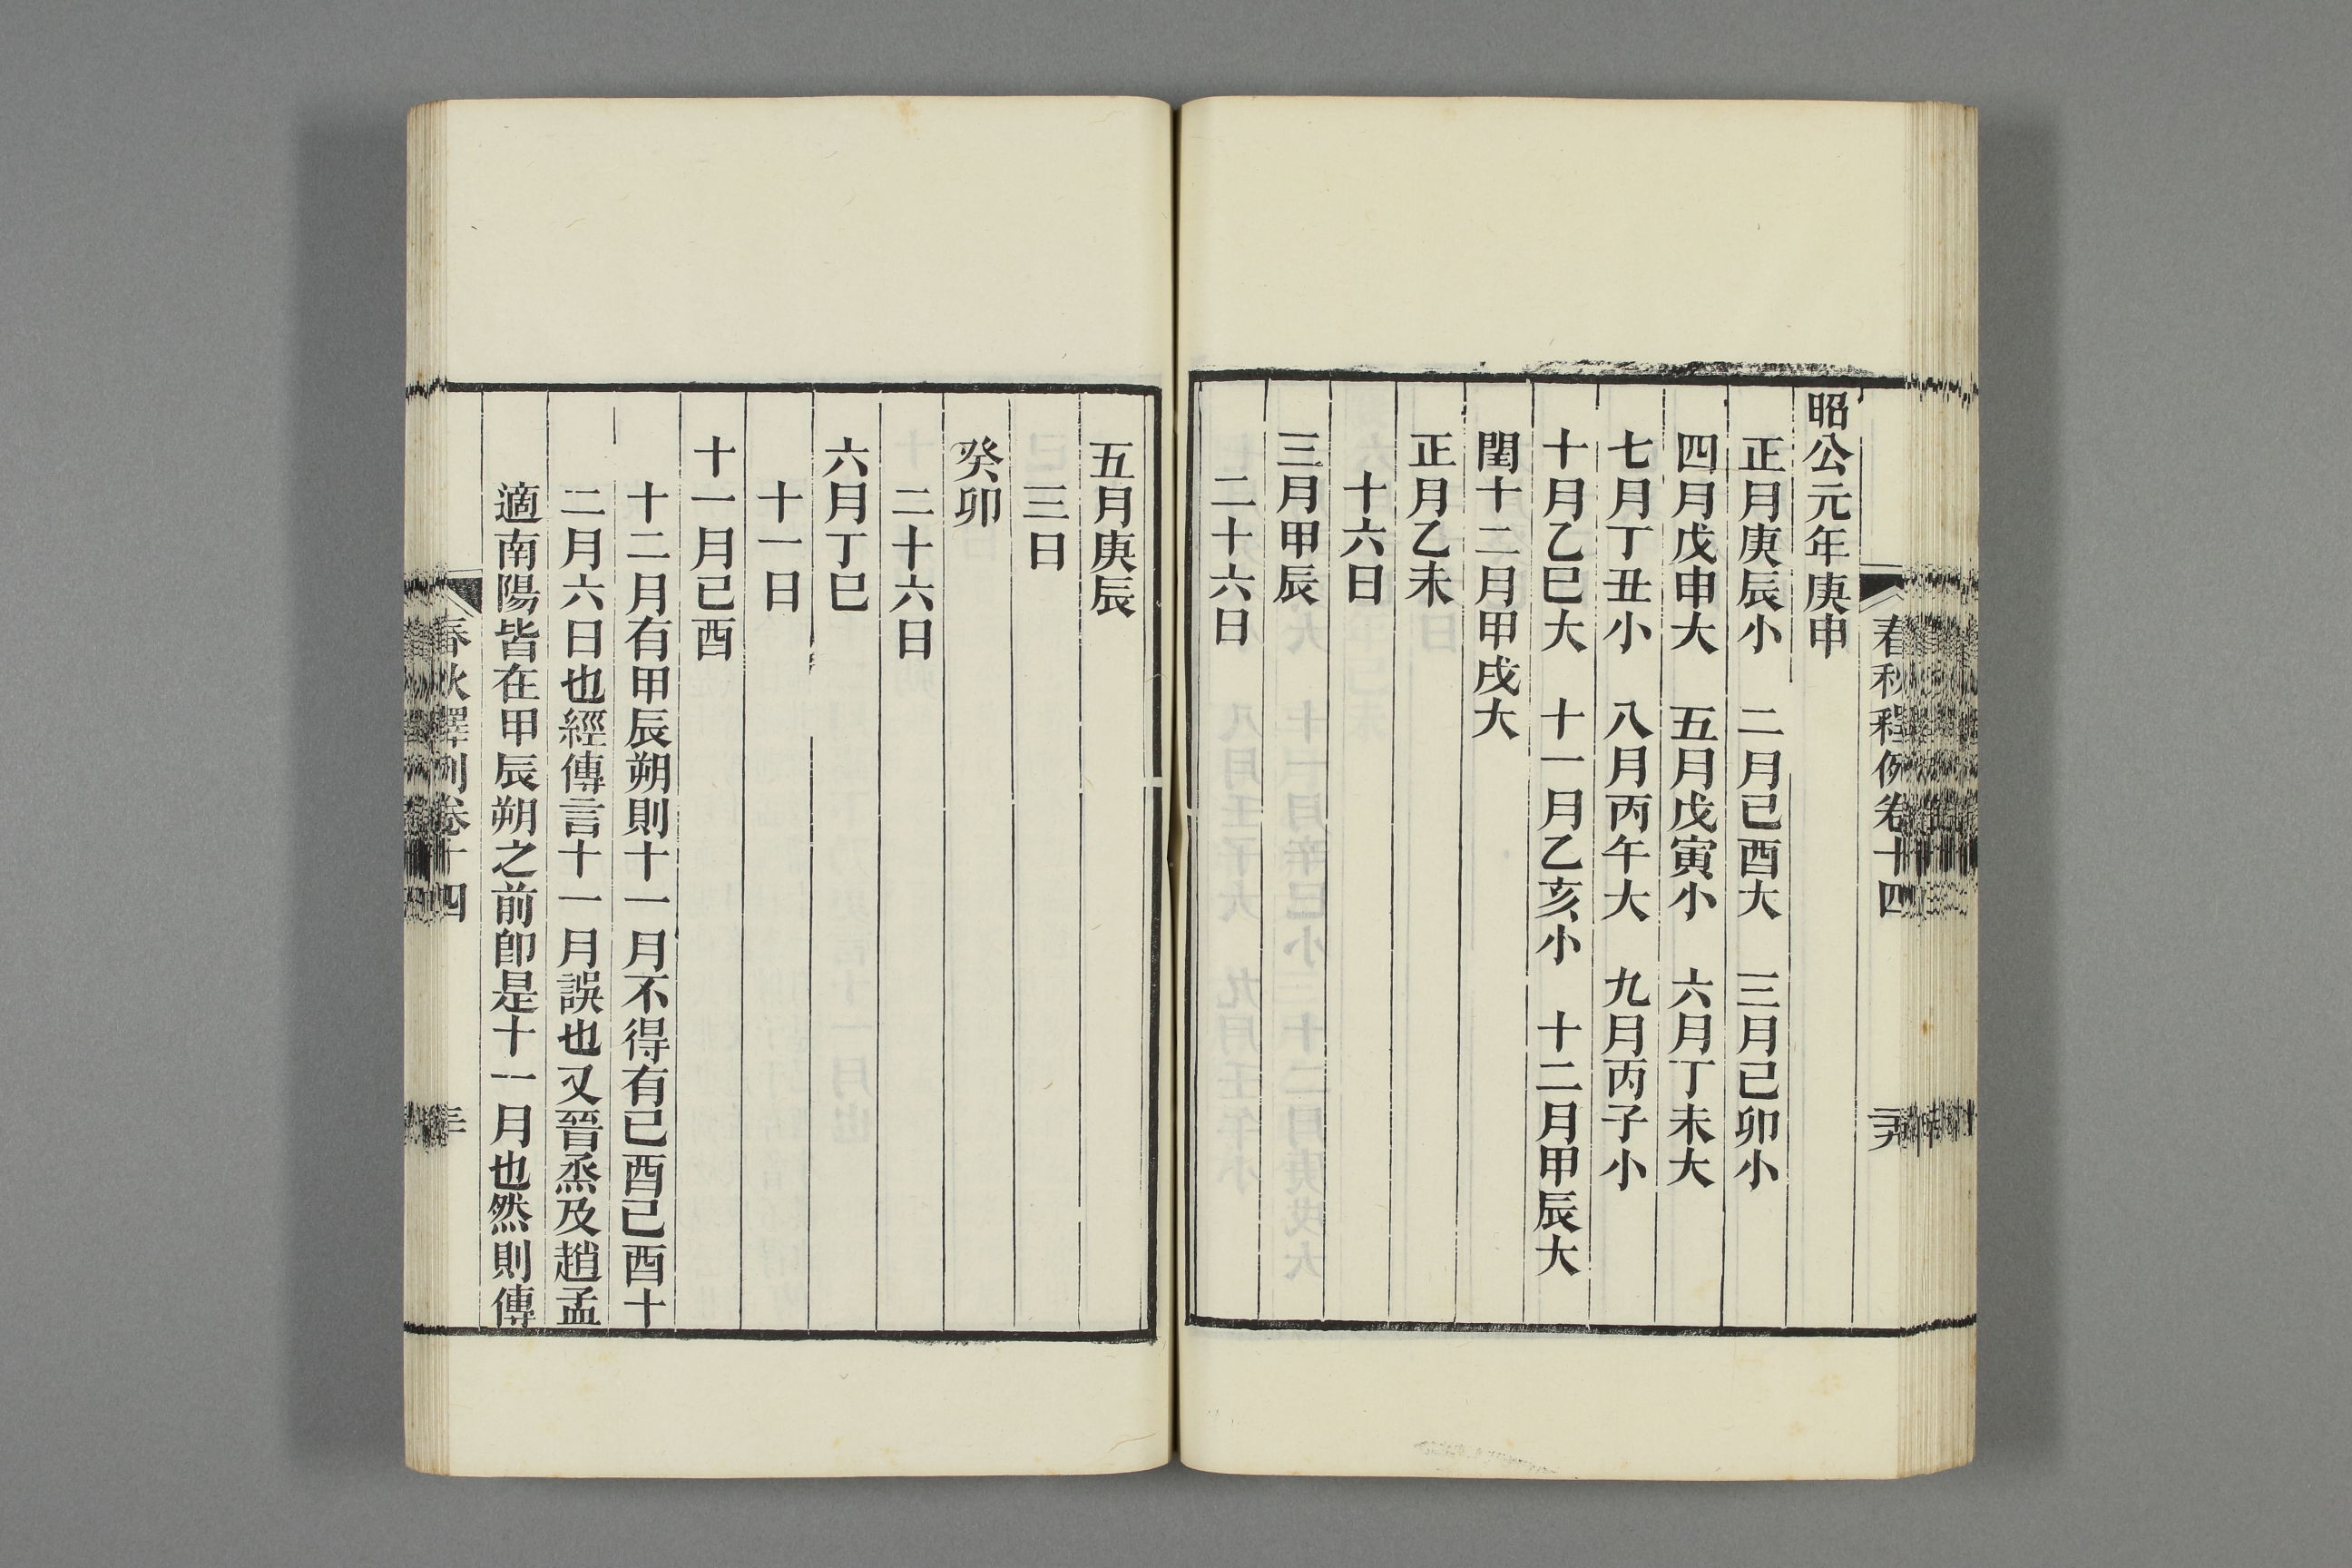 春秋釋例卷十四
昭公元年庚申
正月庚辰小　二月己酉大　三月己卯小
四月戊申大　五月戊寅小　六月丁未大
七月丁丑小　八月丙午大　九月丙子小
十月乙巳大　十一月乙亥小　十二月甲辰大
閏十二月甲戌大
正月乙未
十六日
三月甲辰
二十六日
五月庚辰
三日
癸卯
二十六日
六月丁巳
十一日
十一月己酉
十二月有甲辰朔則十一月不得有己酉己酉十
二月六日也經傳言十一月誤也又晉烝及趙孟
適南陽皆在甲辰朔之前卽是十一月也然則傳
春秋釋例卷十四